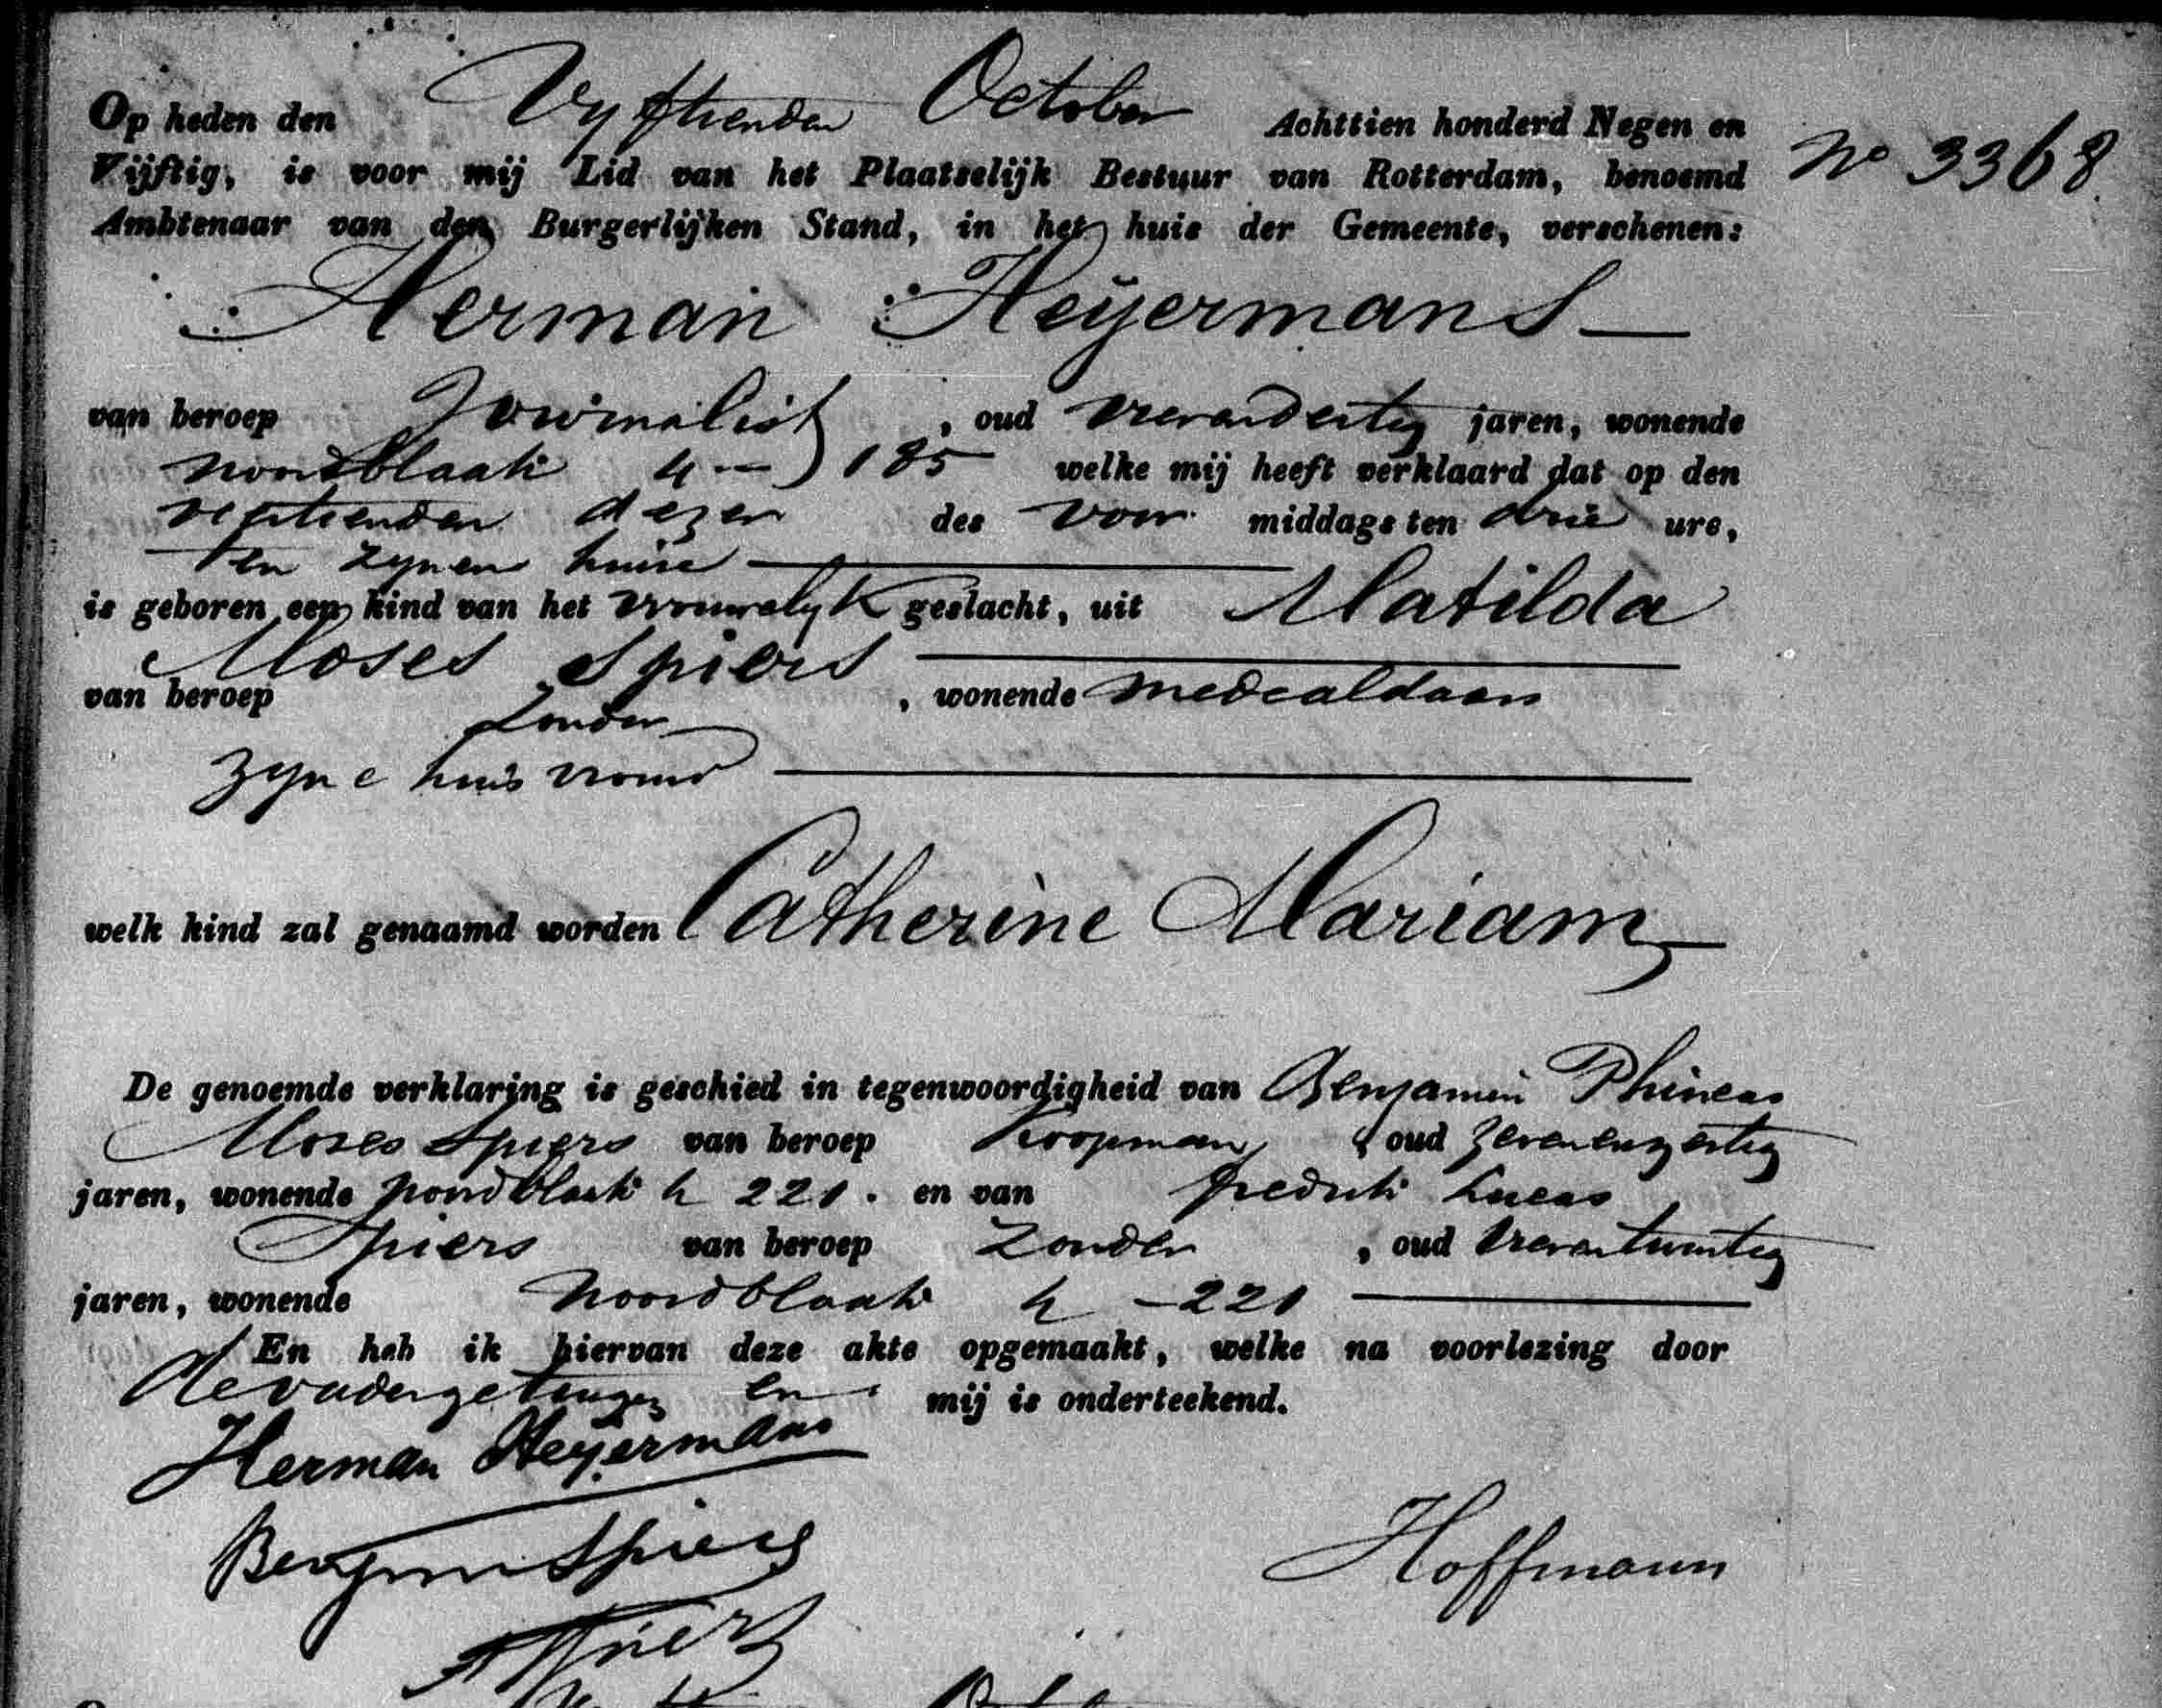 Op heden den Vyftienden October Achttien honderd Negen en
Vijftig, is voor mij Lid van het Plaatselijk Bestuur van Rotterdam, benoemd
No 3368.
Ambtenaar van den Burgerlijken Stand, in het huis der Gemeente, verschenen:
Herman Heijermans
van beroep Journalist, oud jaren, wonende
Noordblaak 4 185 welke mij heeft verklaard dat op den
veertienden dezer des voor middags ten drie ure,
ten zynen huise
is geboren een kind van het vrouwelyk geslacht, uit Matilda
Moses Spiers
van beroep zonder, wonende mede aldaar
zyne huisvrouw
welk kind zal genaamd worden Catherine Mariam
De genoemde verklaring is geschied in tegenwoordigheid van Benjamin Phineas
Moses Spiers van beroep Koopman, oud
jaren, wonende Noordblaak 221. en van Fredrik Lucas
Spiers van beroep zonder, oud
jaren, wonende Noordblaak 221
En heb ik hiervan deze akte opgemaakt, welke na voorlezing door
de vader getuigen en mij is onderteekend.
Herman Heijermans
Spiers
Hoffmann
Spiers